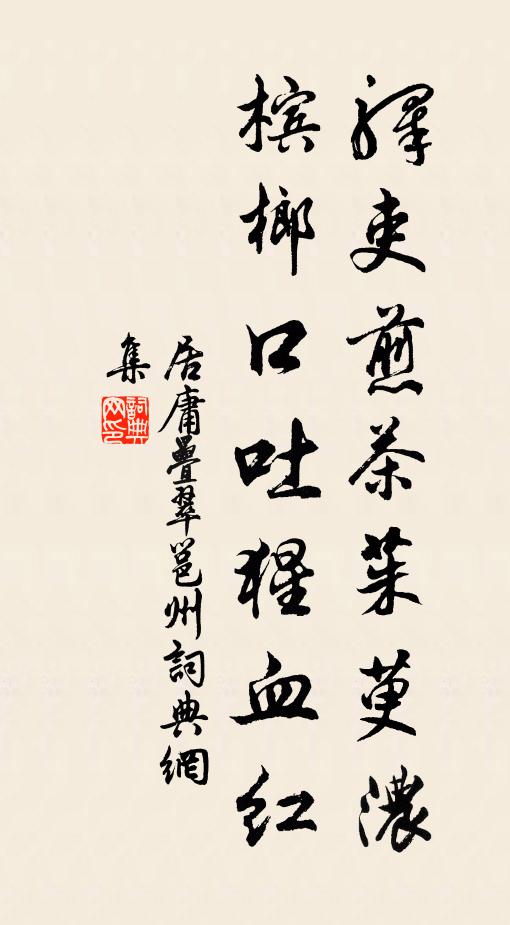 驛吏煎茶茱萸濃
槟榔口吐猩血紅
居庸疊翠邕州詞典網
集
詞典
网印